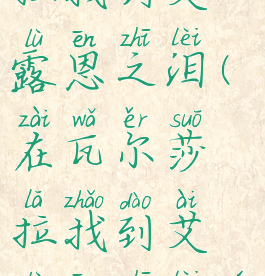 lù ēn zhī lèi
露恩之泪(
zài wǎ ěr suō
在瓦尔莎
lā zhǎo dào ài
拉找到艾